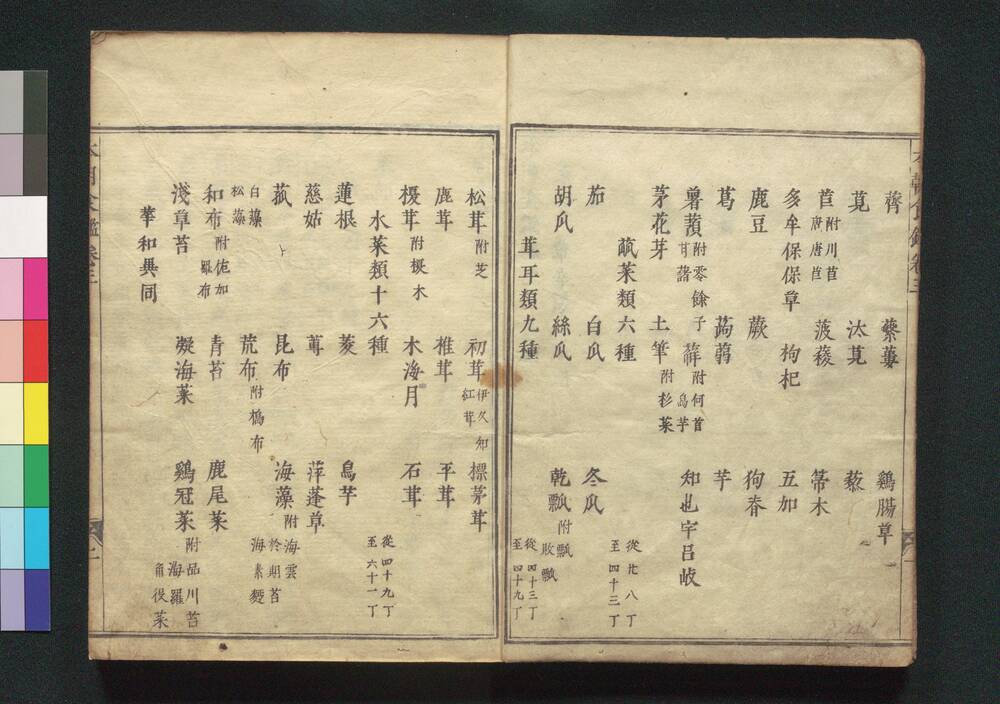 薺 蘩蔞 鷄腸草
莧 汰莧 藜
苣 附川苣 唐苣 菠薐 箒木
多牟保保草 枸杞 五加
鹿豆 蕨 狗脊
葛 蒟蒻 芋
薯蕷 附零餘子 甘藷 附何首烏芋 知也宇呂岐
茅花芽 土筆 附杉菜
蓏菜類六種 從廿八丁至四十三丁
茄 白瓜 冬瓜
胡瓜 絲瓜 乾瓢 附瓢 瓢
茸耳類九種 從四十三丁至四十九丁
松茸 附芝 初茸 伊久知 紅茸 標茅茸
鹿茸 椎茸 平茸
榎茸 附榎木 木海月 石茸
水菜類十六種 從四十九丁至六十一丁
蓮根 菱 烏芋
慈姑 蓴 萍蓬草
菰 昆布 海藻 附海雲 於期苔 海素麪
白藻 松藻 荒布 附布
和布 附加羅布 青苔 鹿尾菜
淺草苔 凝海菜 鷄冠菜 附品川苔 海羅 角俣菜
華和異同